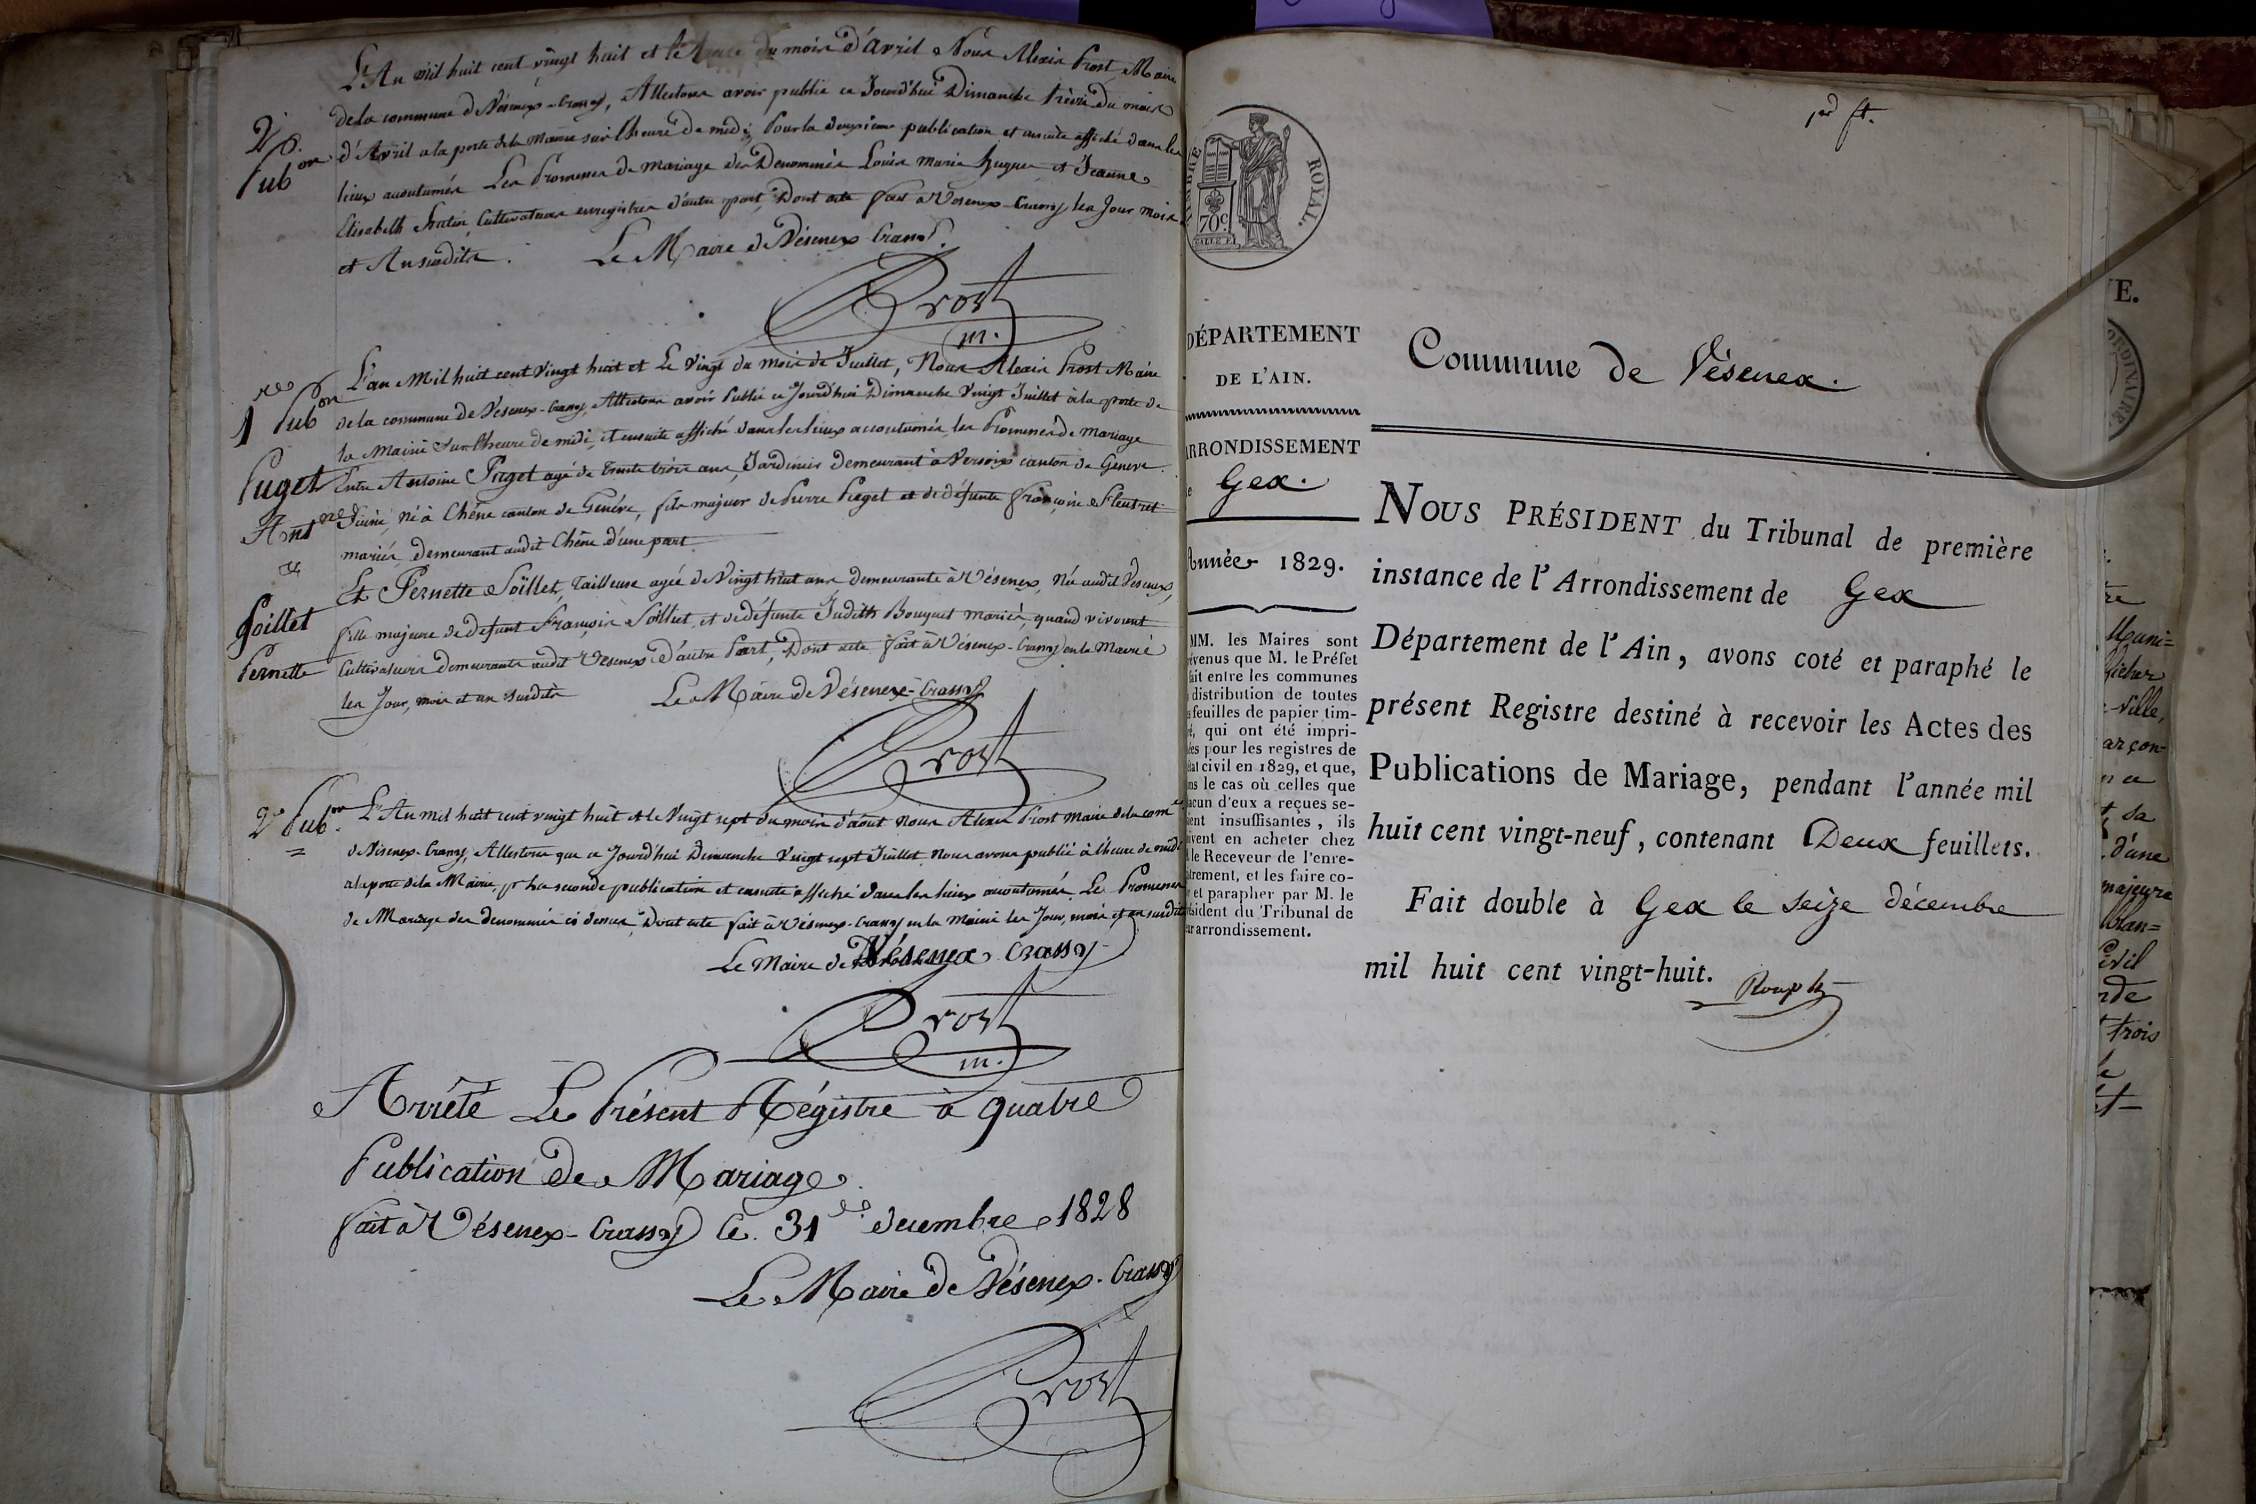 L'An mil huit cent vingt huit et le treize du mois d'Avril Nous Alexis Prost Maire
de la commune de Vésenex-Crassy, Attestons avoir publié ce Jourd'hui Dimanche treize du mois
2e Pub.on
d'Avril a la porte de la Mairie sur l'heure de midi, Pour la deuxieme publication et ensuite affiché dans les
lieux accoutumés Les Promesses de mariage des Denommés Louis Marie Hugues et Jeanne
Elisabeth Fratin, Cultivateurs enregistrés d'autre part, Dont acte fait à Vésenex-Crassy les Jour mois
et An susdits.
Le Maire de Vésenex Crassy.
Prost
m.
1re Pub.on
L'an Mil huit cent Vingt huit et Le Vingt du mois de Juillet, Nous Alexis Prost Maire
de la commune de Vesenex-Crassy, Attestons avoir Publié ce Jourd'hui Dimanche Vingt Juillet à la porte de
la Mairie Sur l'heure de midi, et ensuite affiché dans les lieux accoutumés, les Promesses de Mariage
Puget Ant.ne & Soillet Pernette
Entre Antoine Puget agé de Trente trois ans, Jardinier demeurant à Versoix canton de Genève
né à Chêne canton de Genève, fils majeur de Pierre Puget et de défunte Françoise
mariés, demeurant audit Chêne d'une part
Et Pernette Soillet, Tailleuse agée de Vingt huit ans demeurante à Vésenex, Née audit Vesenex,
fille majeure de defunt François Soillet, et de défunte Judith Bouquet mariés, quand vivoient
Cultivateurs demeurants audit Vesenex d'autre Part, Dont acte fait à Vésenex-Crassy en la Mairie
les Jour, mois et an susdits
Le Maire de Vésenex-Crassy
Prost
2e Pub.on
L'An mil huit cent vingt huit et le Vingt sept du mois d'août Nous Alexis Prost Maire de la com.e
de Vésenex-Crassy, Attestons que ce Jourd'hui Dimanche Vingt sept Juillet Nous avons publié à l'heure de midi
a la porte de la Mairie, pr la seconde publication et ensuite affiché dans les lieux accoutumés Les Promesses
de Mariage des denommés ci dessus, Dont acte fait à Vésenex-Crassy en la Mairie les Jour, mois et an susdits
Le Maire de Vésenex Crassy
Prost
m.
Arrêté Le Présent Régistre à quatre
Publication de Mariage.
fait à Vésenex-Crassy Le 31 decembre 1828
Le Maire de Vésenex-Crassy
Prost
1er ft.
TIMBRE ROYAL.
70c.
DÉPARTEMENT
DE L'AIN.
ARRONDISSEMENT
Gex.
Année 1829.
MM. les Maires sont
prévenus que M. le Préfet
fait entre les communes
distribution de toutes
feuilles de papier tim-
qui ont été impri-
pour les registres de
civil en 1829, et que,
le cas où celles que
d'eux a reçues se-
insuffisantes, ils
en acheter chez
le Receveur de l'enre-
et les faire co-
et parapher par M. le
Président du Tribunal de
arrondissement.
Commune de Vésenex.
NOUS PRÉSIDENT du Tribunal de première
instance de l'Arrondissement de Gex
Département de l'Ain, avons coté et paraphé le
présent Registre destiné à recevoir les Actes des
Publications de Mariage, pendant l'année mil
huit cent vingt-neuf, contenant Deux feuillets.
Fait double à Gex le seize décembre
mil huit cent vingt-huit.